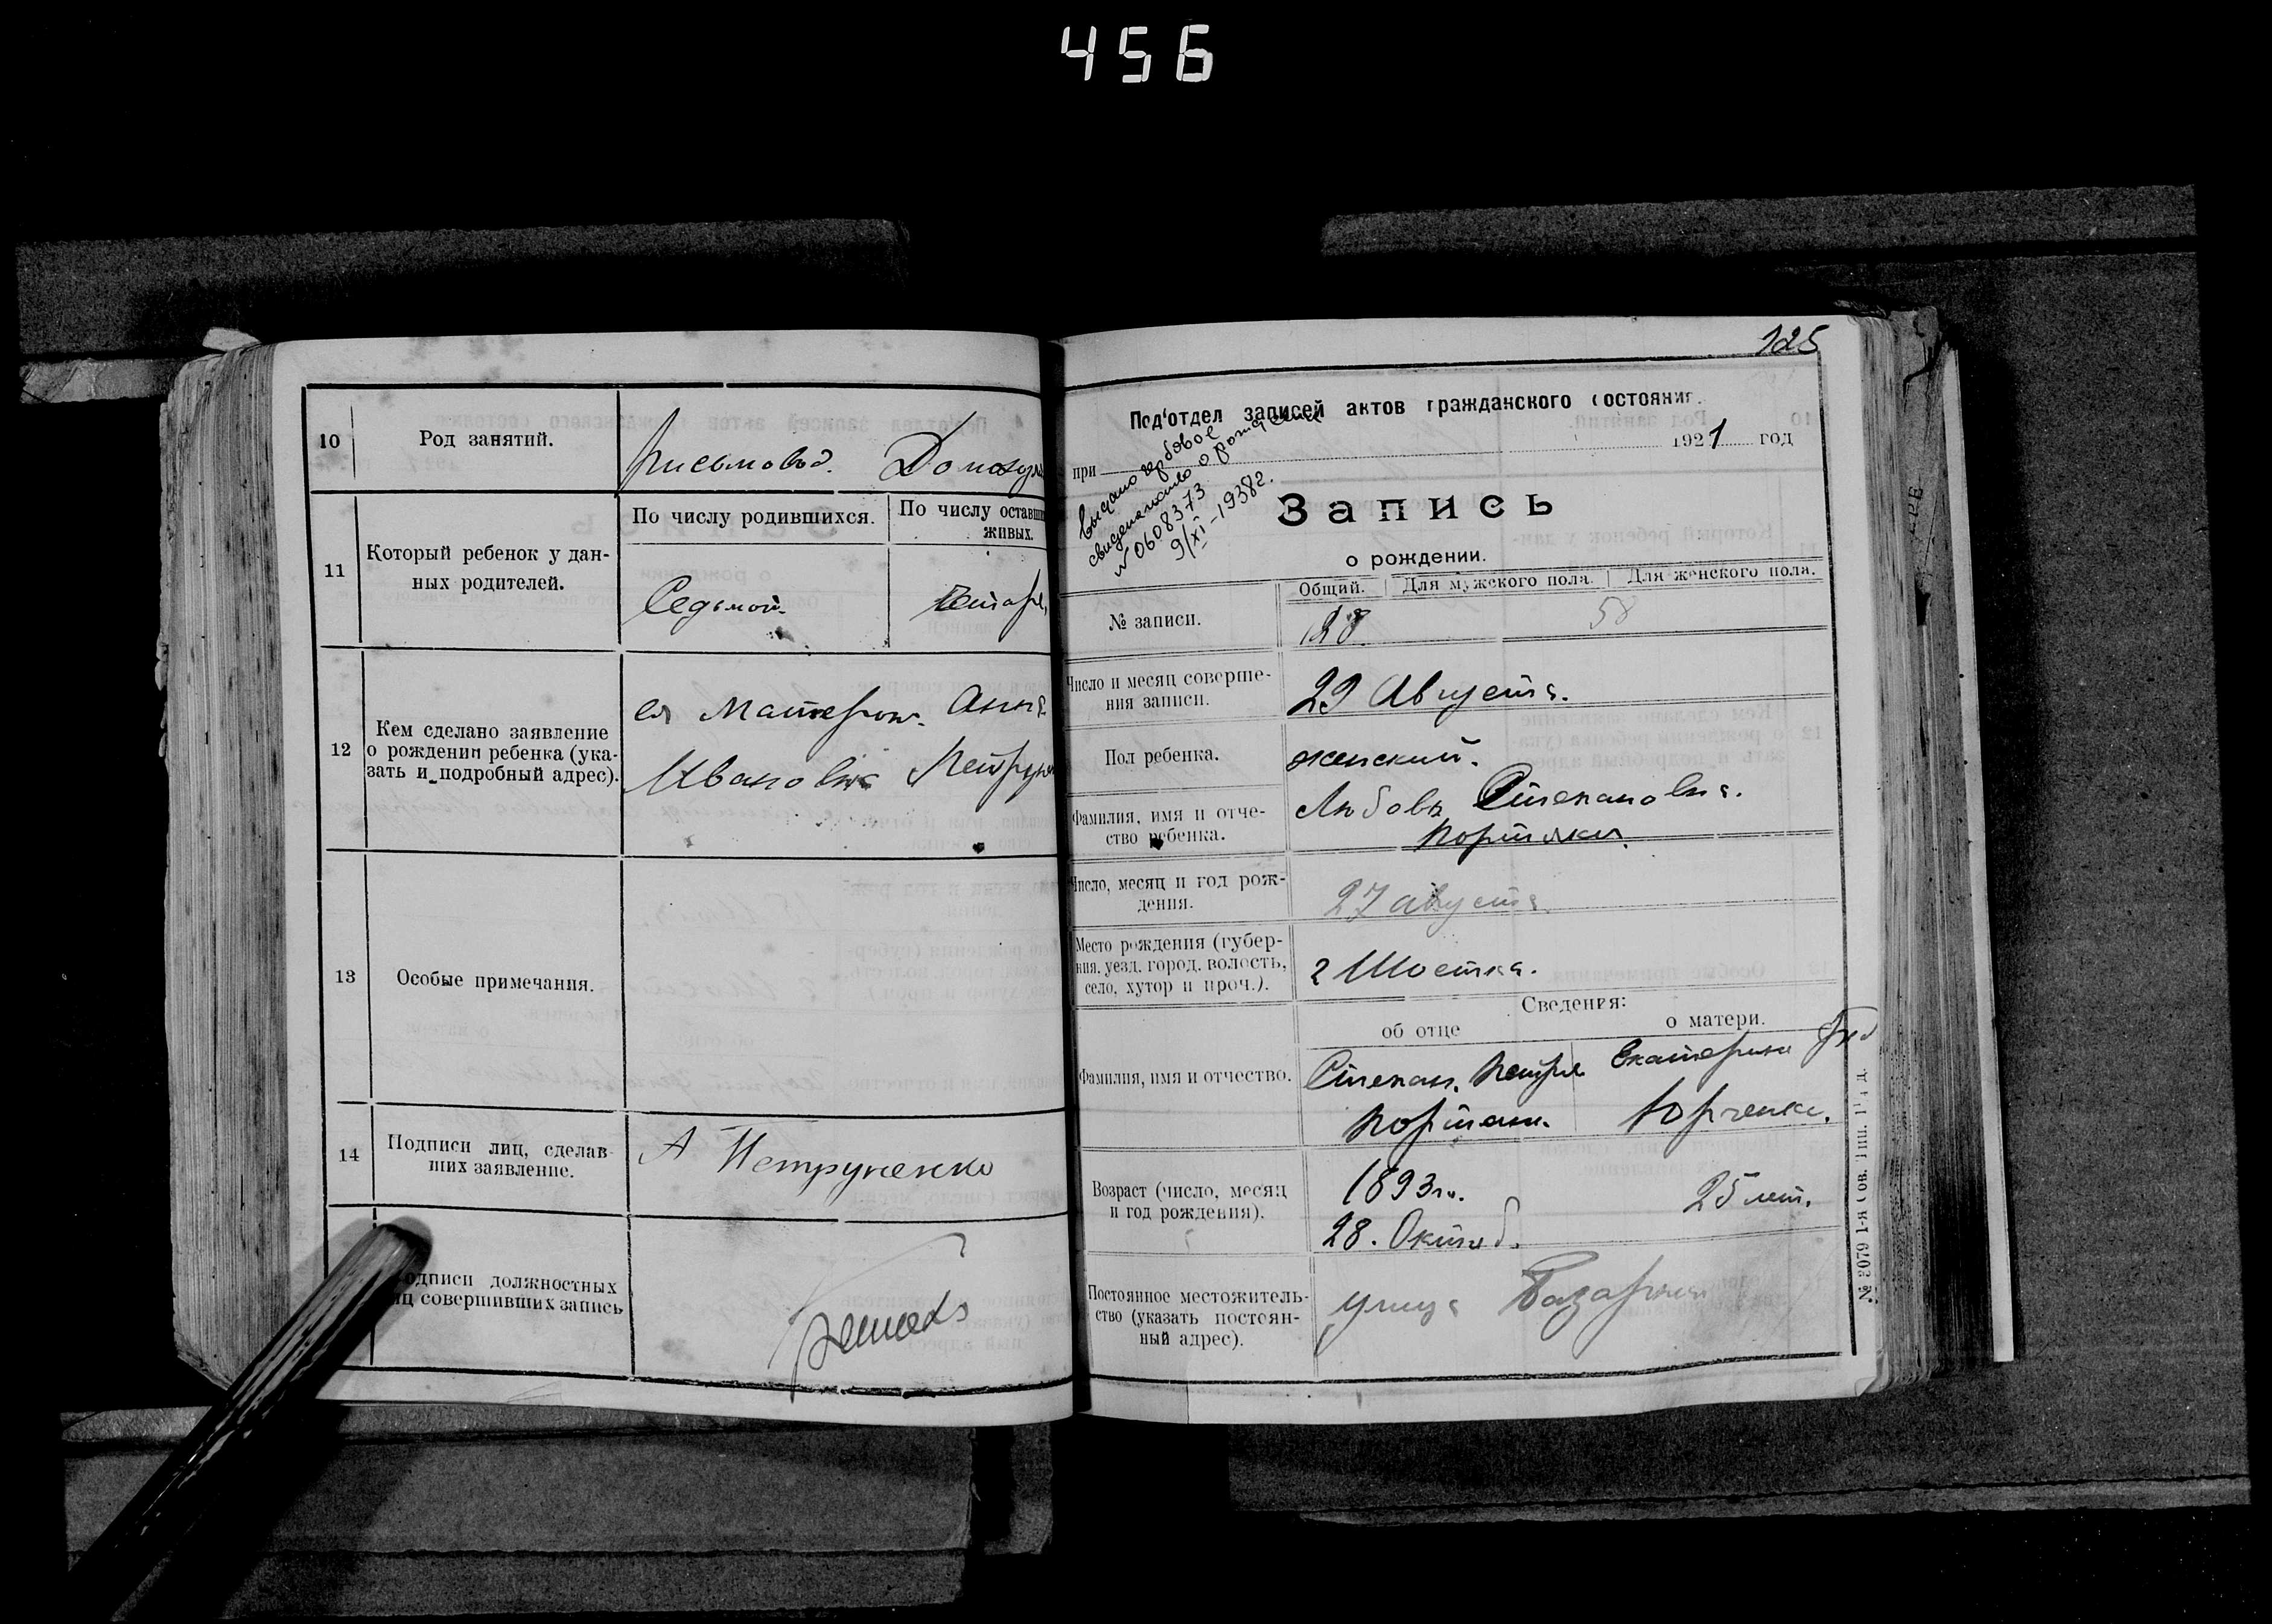 456
10
Род занятий.
Письмовод. Домохоз
11
Который ребенок у дан-
ных родителей.
По числу родившихся.
По числу оставш
живых.
Седьмой.
12
Кем сделано заявление
о рождении ребенка (ука-
зать и подробный адрес).
ея Матерью. Анна
Ивановна Петруне
13
Особые примечания.
14
Подписи лиц, сделав-
ших заявление.
А Петруненко
одписи должностных
иц совершивших запись
125
Под'отдел записей актов гражданского состояния.
при 1921 год
Выдано гербовое
свидетельство о рождении
№ 0608373
9/XI-1938г.
Запись
о рождении.
Общий. Для мужского пола. Для женского пола.
№ записи.
128 58
Число и месяц соверше-
ния записи.
29 Августа.
Пол ребенка.
женский.
Фамилия, имя и отче-
ство ребенка.
Любовь Степановна.
Портянки.
Число, месяц и год рож-
дения.
27 августа
Место рождения (губер-
ния, уезд, город, волость,
село, хутор и проч.).
г Шостка.
Сведения:
об отце
о матери.
Фамилия, имя и отчество.
Степан. Петров Екатерина
Портянк. Юрченко.
Возраст (число, месяц
и год рождения).
1893 г.
28. Октяб.
25 лет.
Постоянное местожитель-
ство (указать постоян-
ный адрес).
улица Базарная
№ 2079 1-я Сов. Тип.